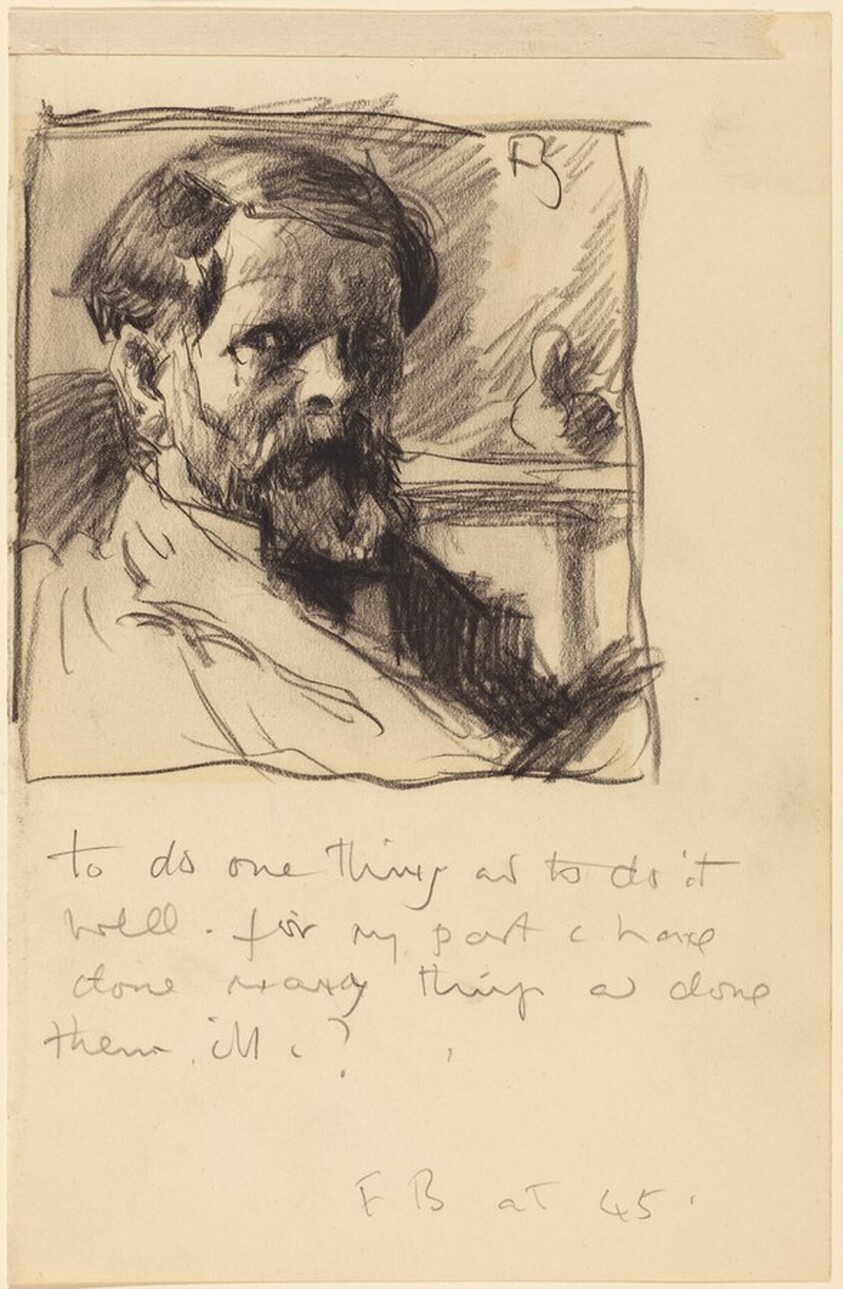 FB
to do one thing and to do it
well. for my part i have
done many things and done
them ill. ?
F B at 45.